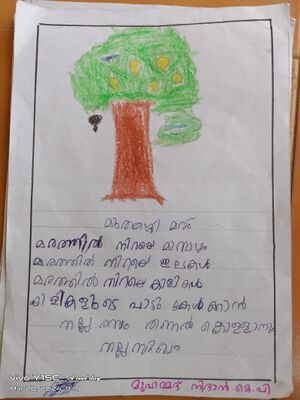 മുത്തശ്ശി മരം
മരത്തിൽ നിറയെ മാമ്പഴം
മരത്തിൽ നിറയെ ഇലകൾ
മരത്തിൽ നിറയെ കിളികൾ
കിളികളുടെ പാട്ടു കേൾക്കാൻ
നല്ല രസം തണൽ കൊള്ളാനും
നല്ല സുഖം
മുഹമ്മദ് നിദാൻ.കെ.പി
vivo Y15C
Mar 20, 202